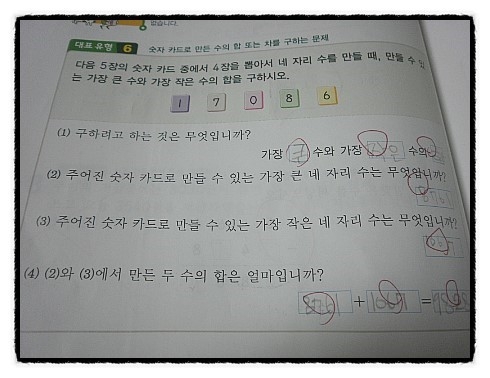 없습니다.
대표 유형 6 숫자 카드로 만든 수의 합 또는 차를 구하는 문제
다음 5장의 숫자 카드 중에서 4장을 뽑아서 네 자리 수를 만들 때, 만들 수 있
는 가장 큰 수와 가장 작은 수의 합을 구하시오.
1 7 0 8 6
(1) 구하려고 하는 것은 무엇입니까?
가장 큰 수와 가장 작은 수의
(2) 주어진 숫자 카드로 만들 수 있는 가장 큰 네 자리 수는 무엇입니까?
(3) 주어진 숫자 카드로 만들 수 있는 가장 작은 네 자리 수는 무엇입니까?
(4) (2)와 (3)에서 만든 두 수의 합은 얼마입니까?
8761 + =